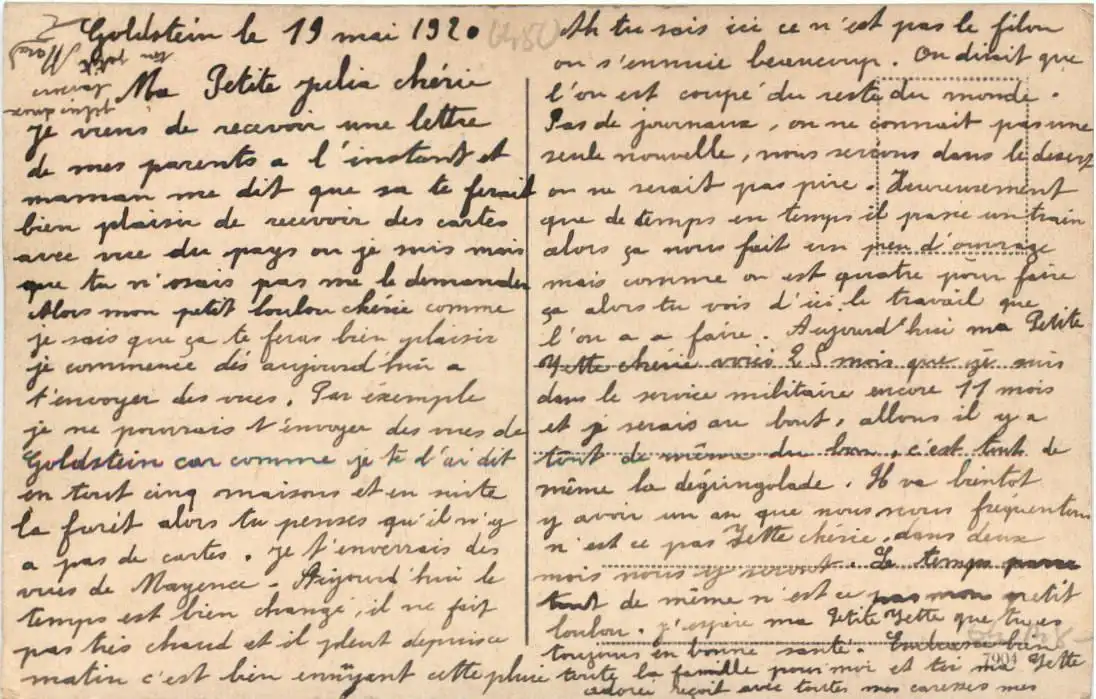 Goldstein le 19 mai 1920
Ma Petite julia chérie
je viens de recevoir une lettre
de mes parents a l'instant et
maman me dit que sa te ferait
bien plaisir de recevoir des cartes
avec vue du pays ou je suis mais
que tu n'osais pas me le demander
Alors mon petit loulou chérie comme
je sais que ça te feras bien plaisir
je commence dès aujourd'hui a
t'envoyer des vues. Par éxemple
je ne pourrais t'envoyer des vues de
Goldstein car comme je te d'ai dit
en tout cinq maisons et en suite
la forêt alors tu penses qu'il n'y
a pas de cartes. je t'enverrais des
vues de Mayence - Aujourd'hui le
temps est bien changé, il ne fait
pas très chaud et il pleut depuis ce
matin c'est bien ennuyant cette pluie
Ah tu sais ici ce n'est pas le filon
on s'ennuie beaucoup. On dirait que
l'on est coupé du reste du monde.
Pas de journaux, on ne connait pas une
seule nouvelle, nous serions dans le desert
on ne serait pas pire. Heureusement
que de temps en temps il passe un train
alors ça nous fait un peu d'ouvrage
mais comme on est quatre pour faire
ça alors tu vois d'ici le travail que
l'on a a faire. Aujourd'hui ma Petite
Yette chérie voici 25 mois que je suis
dans le service militaire encore 11 mois
et je serais au bout, allons il y a
tout de même du bon, c'est tout de
même la dégringolade. Il va bientot
y avoir un an que nous nous fréquentons
n'est ce pas Yette chérie, dans deux
mois nous y seront. Le temps passe
tout de même n'est ce pas mon petit
loulou. j'espère ma Petite Yette que tu es
toujours en bonne santé. Embrasse bien
toute la famille pour moi et toi ma Yette
adorée reçoit avec toutes mes caresses mes
7904